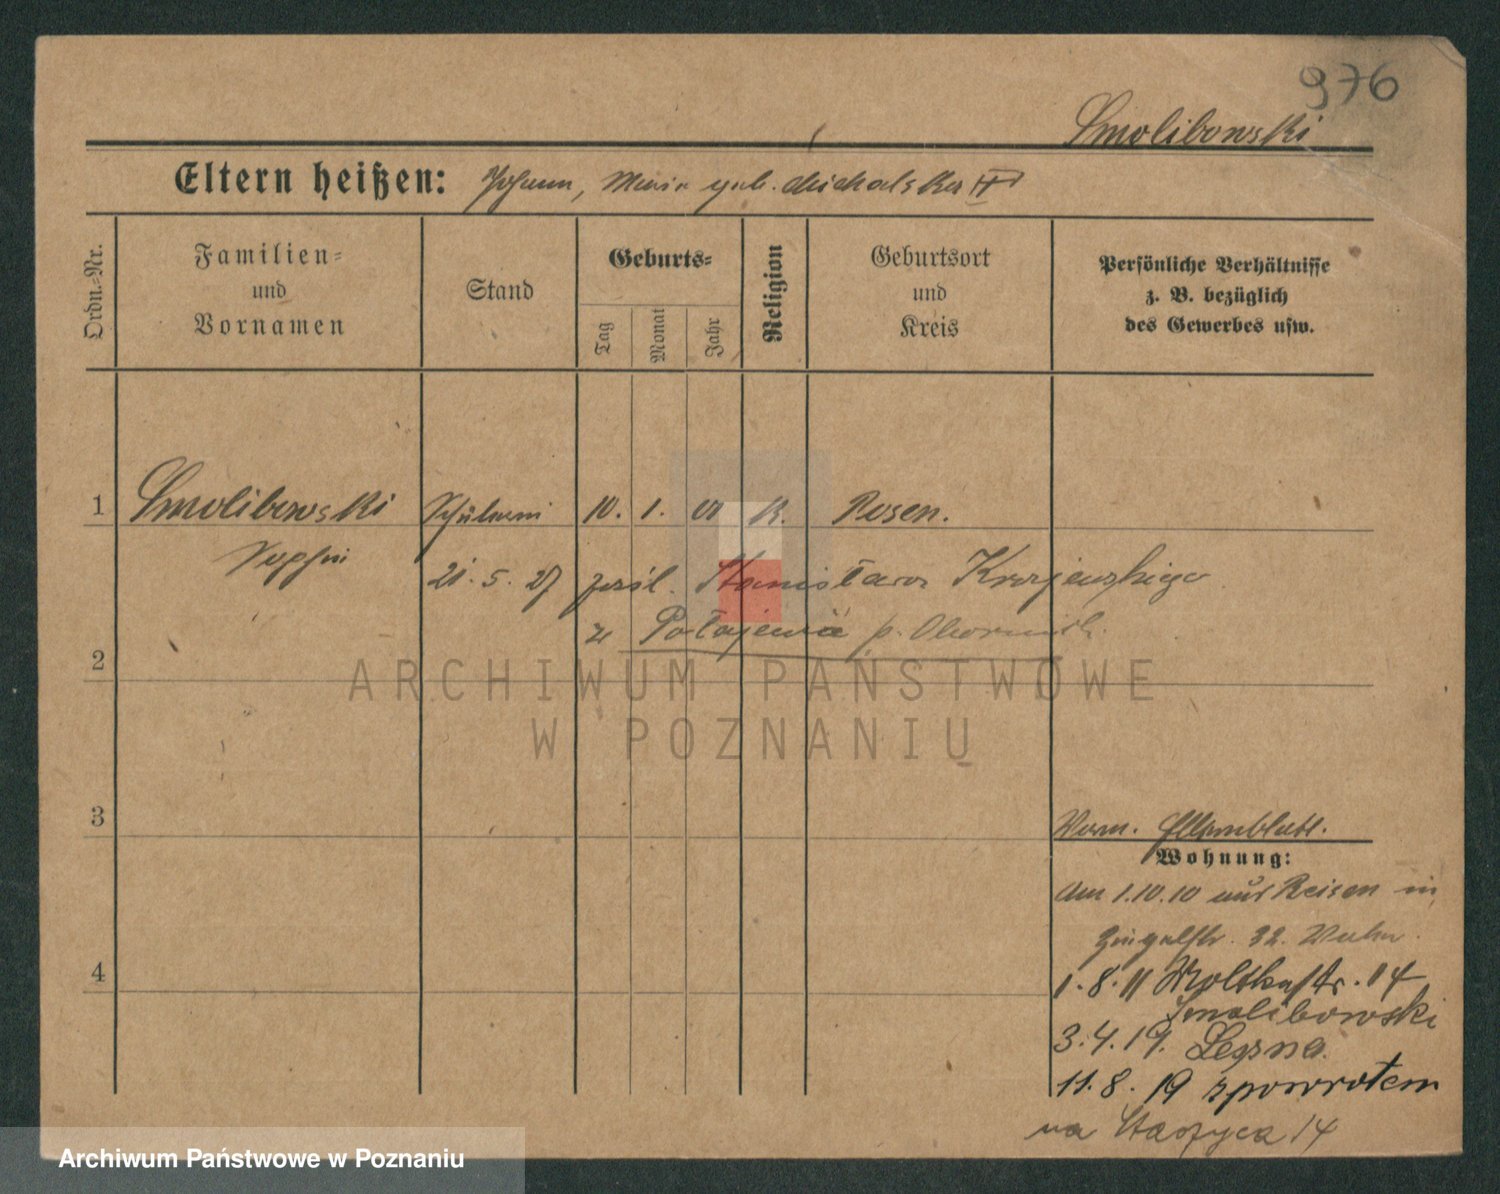 976
Smolibowski
Eltern heißen: Johann, Maria geb. Michalska
Ordn.-Nr.
Familien- und Vornamen
Stand
Geburts-
Tag
Monat
Jahr
Religion
Geburtsort und Kreis
Persönliche Verhältnisse
z. B. bezüglich
des Gewerbes usw.
1 Smolibowski Schülerin 10. 1. 01 K. Posen.
Sophie
21. 5. 27 zaśl. Stanisława
z Połajewa p. Obornik.
2
ARCHIWUM PAŃSTWOWE
W POZNANIU
3
Vorn. Elternblatt.
Wohnung:
Am 1.10.10 aus Reisen in
32.
4
1.8.11 Moltkestr. 14
Smolibowski
3.4.19.
11.8.19 zpowrotem
na Staszyca 14
Archiwum Państwowe w Poznaniu